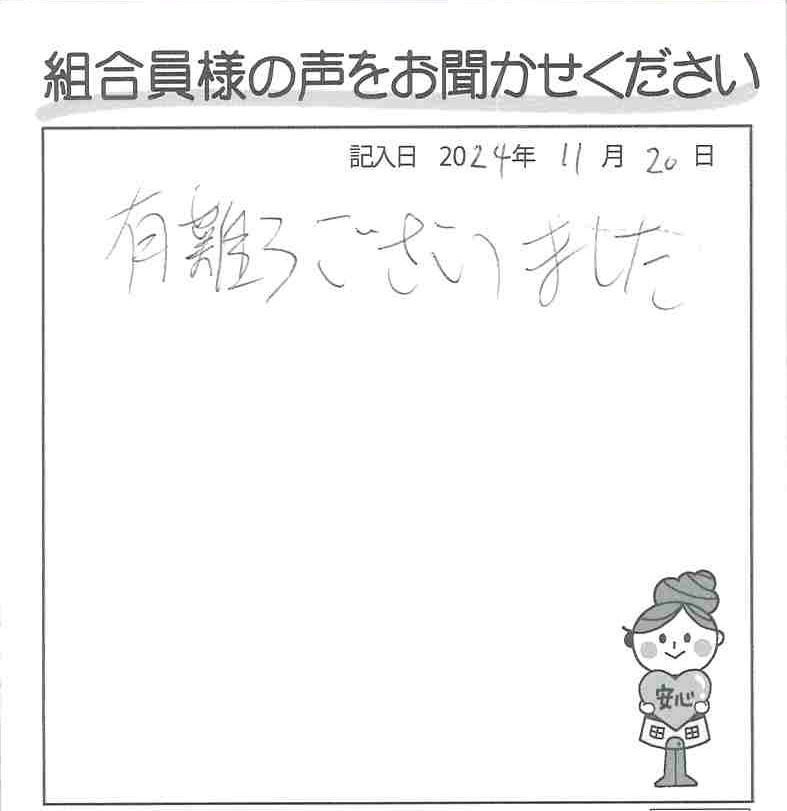 組合員様の声をお聞かせください
記入日 2024年 11月 20日
有難うございました
安心